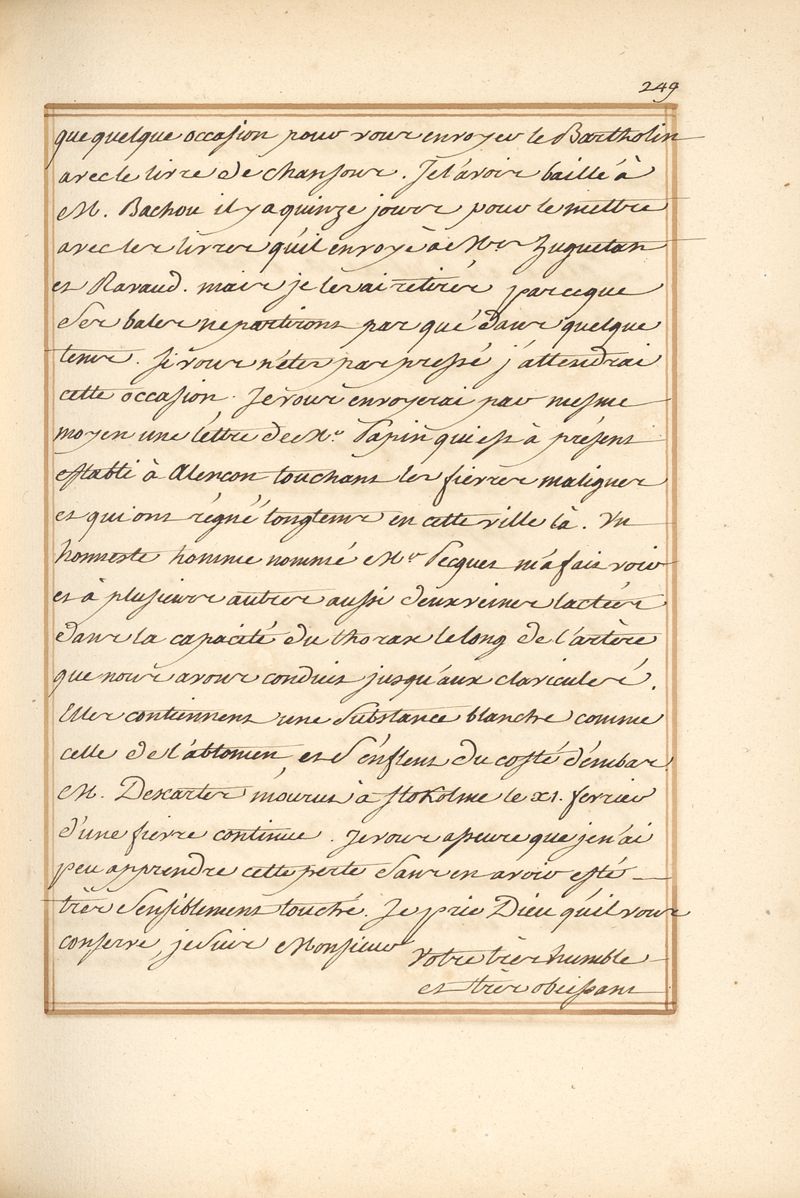 249
que quelque occasion pour vous envoyer le Bartholin
avec le livre de chansons. Je l'avois baillé à
M. Bachou il y a quinze jours pour le mettre
avec les livres qu'il envoyé à Mrs Huguetan
et Ravaud. mais je les ai retirés parceque
ses bales ne partirons par qué dans quelque
tems. Si vous n'étes pas pressé j'attendrai
cette occasion. Je vous envoyerai par mesme
moyen une léttre de Mr Papin qui est à présent
establi à Alencon touchant les fievres malignes
et qui ont régné longtems en cette ville là. Un
honneste homme nommé Mr Pecquet m'a fait voir
et à plusieurs autres aussi deux veines lactées
dans la capacité du thorax le long de l'artère
que nous avons conduit jusqu'aux claviculeś.
Elles contiennent une substance blanche comme
celle de l'abtomen, et s'enflent du costé d'embas.
M. Descartes mourut à Stokolme le xi. fevrier
d'une fievre continue. Je vous asseure que je n'ai
peu apprendre cette perte sans en avoir esté
très sensiblement touché. Je prie Dieu qu'il vous
conserve, je suis Monsieur
Votre très humble
et très obeissant